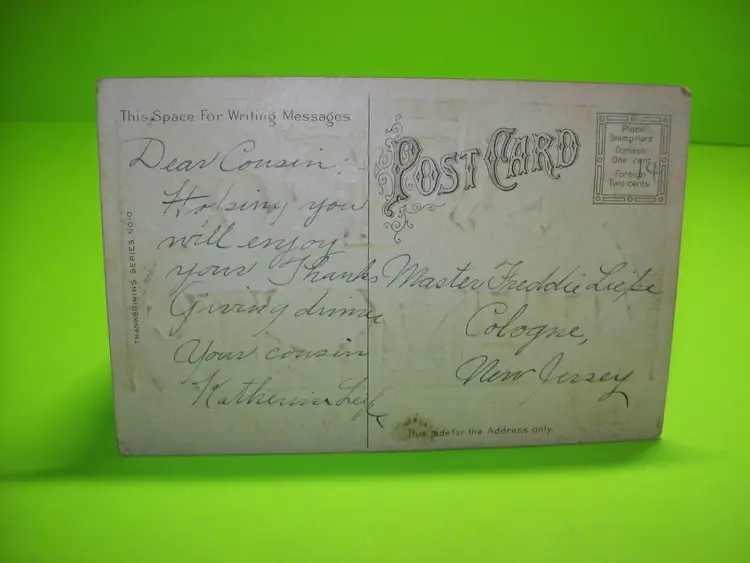 This Space For Writing Messages
Dear Cousin:
Hoping you
will enjoy
your Thanks
Giving dinner
Your cousin
Katherine
THANKSGIVING SERIES NO 10
POST CARD
Place
Stamp Here
Domestic
One cent
Foreign
Two cents
14
Master Freddie
Cologne,
New Jersey
This side for the Address only.